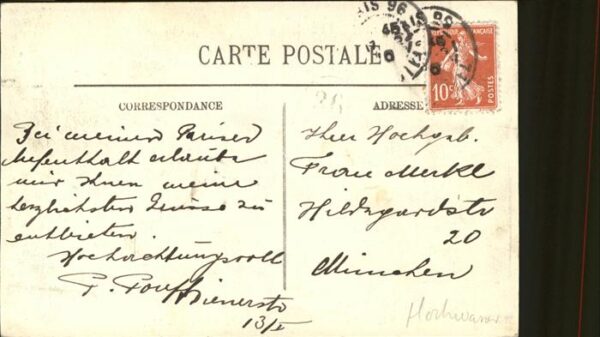 CARTE POSTALE
CORRESPONDANCE
ADRESSE
RÉPUBLIQUE FRANÇAISE
10c
POSTES
PARIS 96
Bei meinem Pariser
Aufenthalt erlaube
mir Ihnen meine
herzlichsten Grüsse zu
entbieten.
Hochachtungsvoll
P.
Wienerstr
13/I
Ihrer Hochgeb.
Frau Merkl
Hildegardstr
20
München
Hochwasser